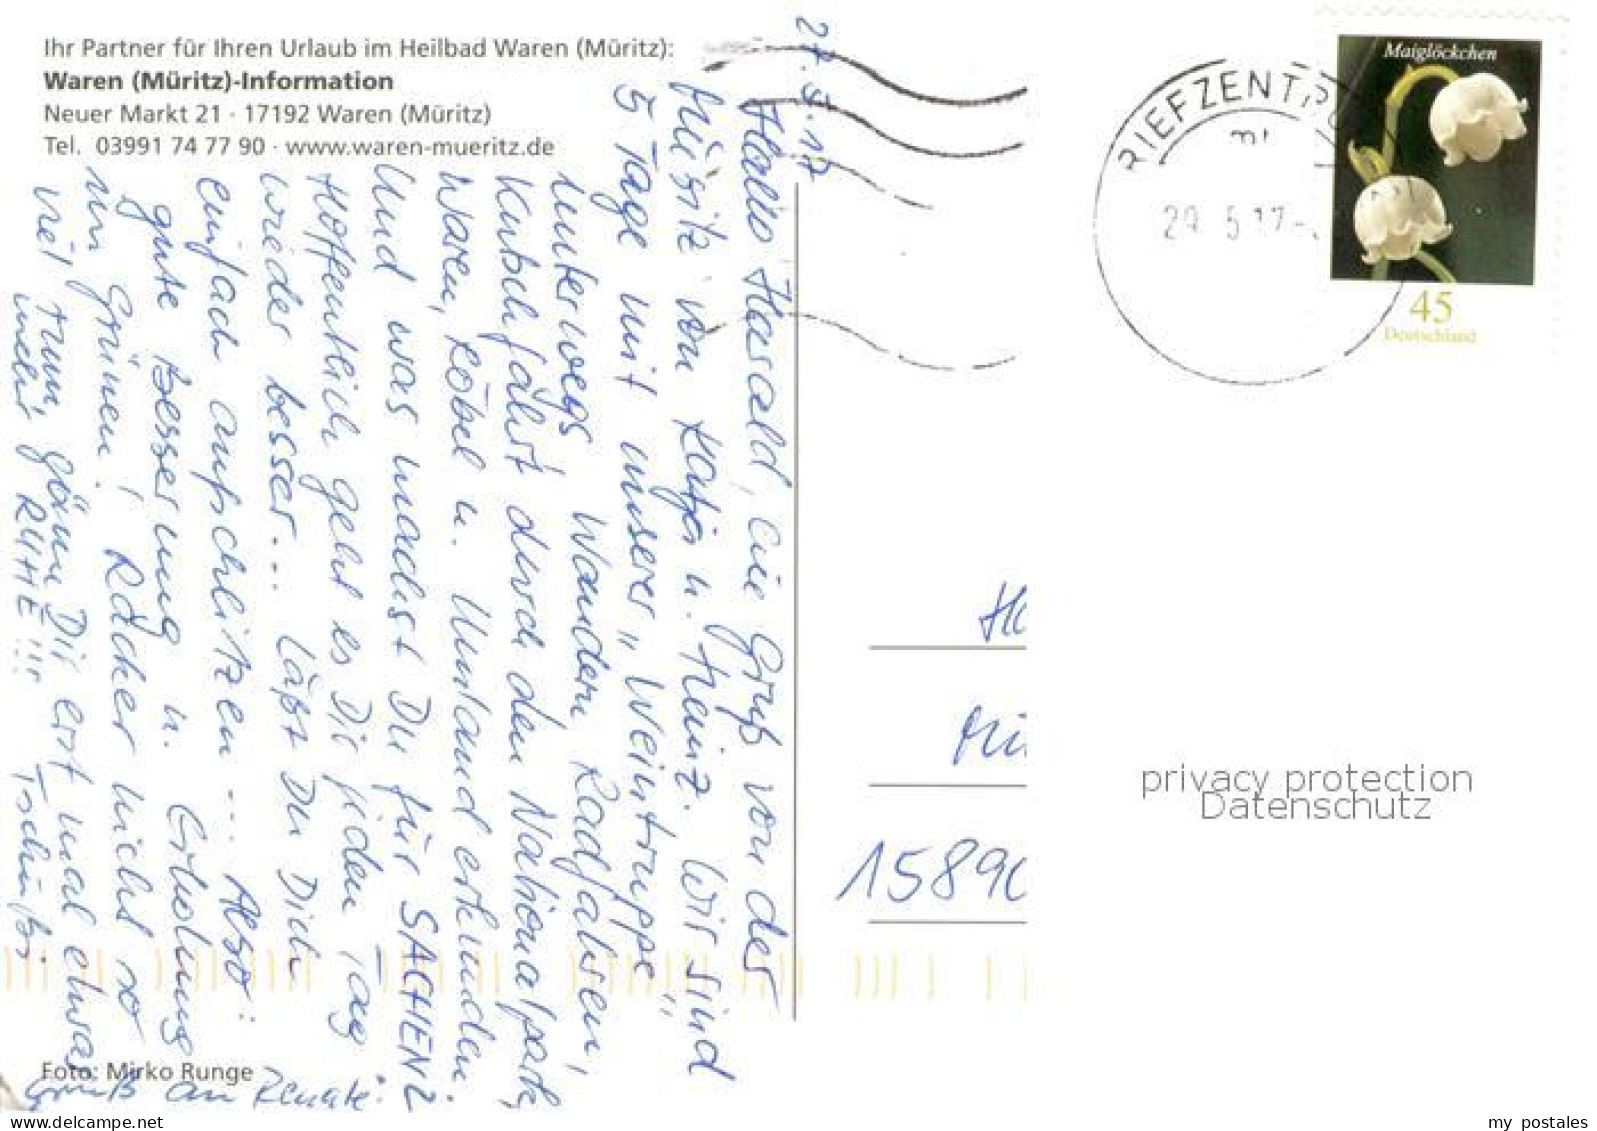 Ihr Partner für Ihren Urlaub im Heilbad Waren (Müritz):
Waren (Müritz)-Information
Neuer Markt 21 · 17192 Waren (Müritz)
Tel. 03991 74 77 90 · www.waren-mueritz.de
27.5.17
Hallo Harald, ein Gruß von der
Müritz von Katja u. Heinz. Wir sind
5 Tage mit unserer "Weintruppe"
unterwegs. Wandern, Radfahren,
Kutschfahrt durch den Nationalpark,
Waren, Röbel u. Umland erkunden.
Und was machst Du für SACHEN?
Hoffentlich geht es Dir jeden Tag
wieder besser... Läßt Du Dich
einfach aufschlitzen... Also:
gute Besserung u. Erholung
im Grünen! Racker nicht so
viel rum, gönn Dir erst mal etwas
mehr RUHE!!! Tschüß.
Gruß an Renate.
Foto: Mirko Runge
RIEFZENTR
29.5.17-
Maiglöckchen
45
Deutschland
1589
privacy protection
Datenschutz
www.delcampe.net
my_postales